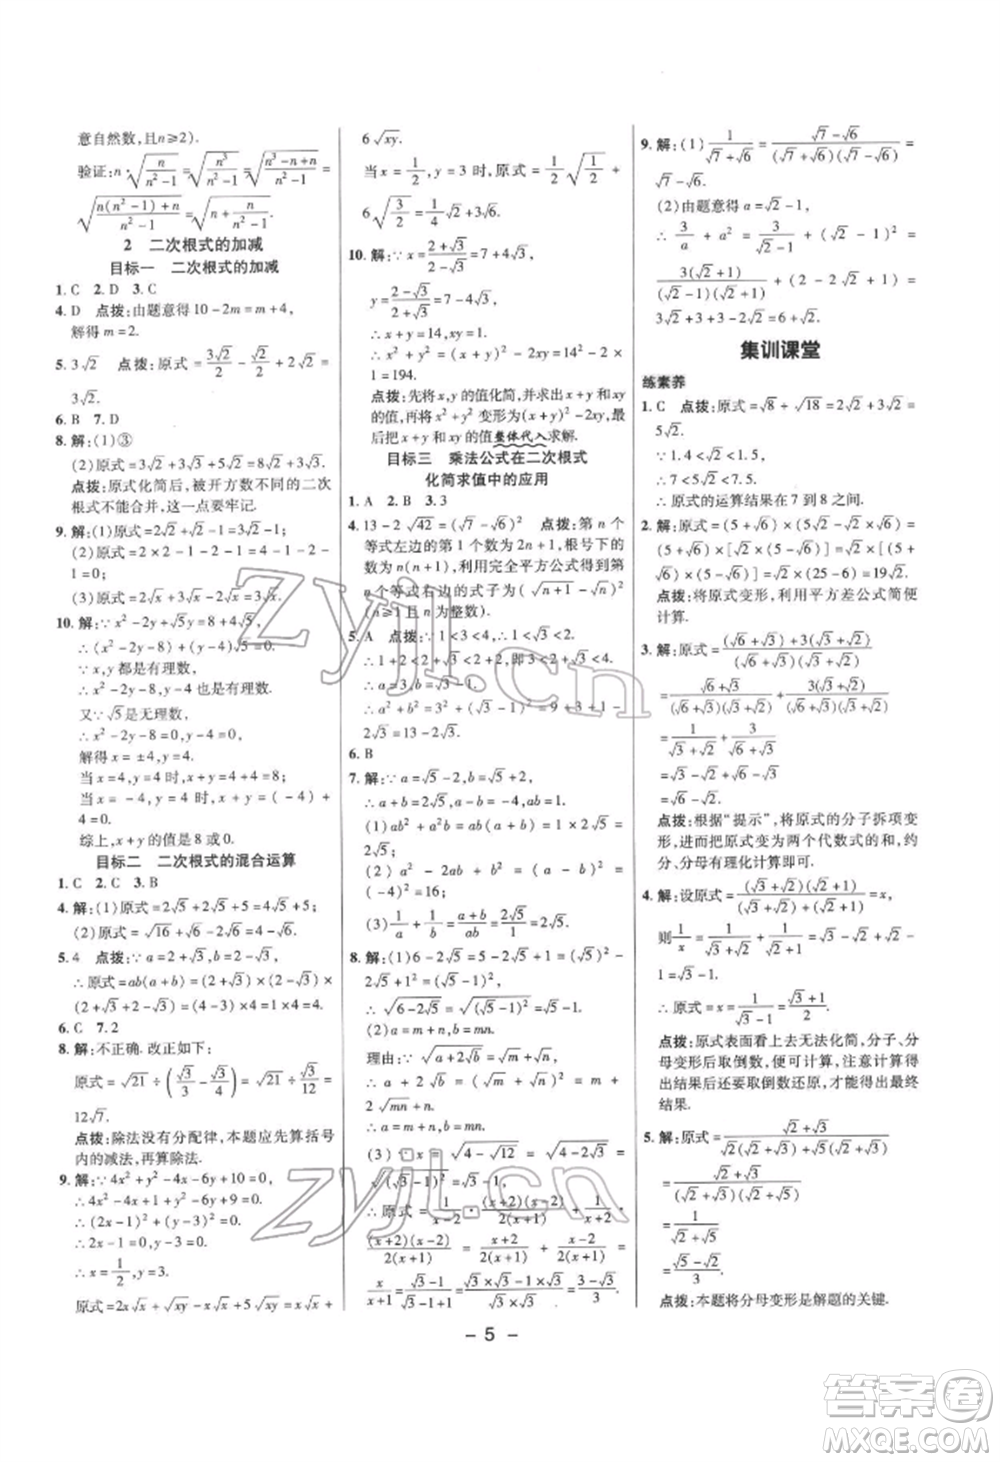 意自然数,且n≥2).
验证:n·√(n/(n²-1))=√(n³/(n²-1))=√((n³-n+n)/(n²-1))=
√((n(n²-1)+n)/(n²-1))=√(n+n/(n²-1)).
2 二次根式的加减
目标一 二次根式的加减
1. C 2. D 3. C
4. D 点拨:由题意得10-2m=m+4,
解得m=2.
5. 3√2 点拨:原式=3√2/2-√2/2+2√2=
3√2.
6. B 7. D
8. 解:(1)③
(2)原式=3√2+3√5+5√2=8√2+3√5.
点拨:原式化简后,被开方数不同的二次
根式不能合并,这一点要牢记.
9. 解:(1)原式=2√2+√2-1=3√2-1;
(2)原式=2×2-1-√3=3-√3;
(3)原式=2√3-√3-√3=0.
10. 解:∵x²-2y+√5y=8+4√5,
∴(x²-2y-8)+(y-4)√5=0.
∵x,y都是有理数,
∴x²-2y-8,y-4也是有理数.
又∵√5是无理数,
∴x²-2y-8=0,y-4=0.
解得x=±4,y=4.
当x=4,y=4时,x+y=4+4=8;
当x=-4,y=4时,x+y=(-4)+4
=0.
综上,x+y的值是8或0.
目标二 二次根式的混合运算
1. C 2. C 3. B
4. 解:(1)原式=2√5+2√5=4√5;
(2)原式=√16+√6-2√6=4-√6.
5. 4 点拨:∵a=2+√3,b=2-√3,
∴原式=ab(a+b)=(2+√3)×(2-√3)×
(2+√3+2-√3)=(4-3)×4=4.
6. C 7. 2
8. 解:不正确.改正如下:
原式=√21÷(√3/3-√3/4)=√21÷√3/12=
12√7.
点拨:除法没有分配律,本题应先算括号
内的减法,再算除法.
9. 解:∵4x²+y²-4x-6y+10=0,
∴4x²-4x+1+y²-6y+9=0.
∴(2x-1)²+(y-3)²=0.
∴x=1/2,y=3.
原式=2x√x+√xy-x√x+5√xy=x√x+
6√xy.
当x=1/2,y=3时,原式=1/2×√(1/2)+
6√(3/2)=1/4√2+3√6.
10. 解:∵x=(2+√3)/(2-√3)=7+4√3,
y=(2-√3)/(2+√3)=7-4√3,
∴x+y=14,xy=1.
∴x²+y²=(x+y)²-2xy=14²-2×
1=194.
点拨:先将x,y的值化简,求出x+y和xy
的值,再将x²+y²变形为(x+y)²-2xy,
最后把x+y和xy的值整体代入求解.
目标三 乘法公式在二次根式
化简求值中的应用
1. A 2. B 3. 3
4. 13-2√42=(√7-√6)² 点拨:第n个
等式左边的第1个数为2n+1,根号下的
数为n(n+1),利用完全平方公式得到第
n个等式右边的式子为(√(n+1)-√n)²
(n≥1,且n为整数).
5. A 点拨:∵1<3<4,∴1<√3<2.
∴1+2<2+√3<2+2,即3<2+√3<4.
∴a=3,b=√3-1.
∴(a-b)(a+b)=a²-b²=9-(4-
2√3)=13-2√3.
6. B
7. 解:∵a=√5-2,b=√5+2,
∴a+b=2√5,a-b=-4,ab=1.
(1)ab²+a²b=ab(a+b)=1×2√5=
2√5;
(2)a²-2ab+b²=(a-b)²=
(-4)²=16;
(3)1/a+1/b=(a+b)/ab=2√5/1=2√5.
8. 解:(1)6-2√5=5-2√5+1=(√5)²-
2√5+1²=(√5-1)²,
∴√(6-2√5)=√((√5-1)²)=√5-1.
(2)a=m+n,b=mn.
理由:∵√(a+2√b)=√m+√n,
∴a+2√b=(√m+√n)²=m+
2√mn+n.
∴a=m+n,b=mn.
(3)∵x=√(4-√12)=√(4-2√3)=
√((√3-1)²)=√3-1,
∴原式=1/(x-2)·(x+2)(x-2)/2(x+1)=
(x+2)(x-2)/2(x+1)=(x+2)/2(x+1)+(x-2)/2(x+1)=
x/(x+1)=(√3-1)/(√3-1+1)=(√3×√3-1×√3)/(√3×√3)=(3-√3)/3.
9. 解:(1)1/(√7+√6)=(√7-√6)/((√7+√6)(√7-√6))=
√7-√6.
(2)由题意得a=√2-1,
∴3/a+a²=3/(√2-1)+(√2-1)²=
3(√2+1)/((√2-1)(√2+1))+(2-2√2+1)=
3√2+3+3-2√2=6+√2.
集训课堂
练素养
1. C 点拨:原式=√8+√18=2√2+3√2=
5√2.
∵1.4<√2<1.5,
∴7<5√2<7.5.
∴原式的运算结果在7到8之间.
2. 解:原式=(5+√6)×(5√2-2√3)=
(5+√6)×[√2×(5-√6)]=√2×
(5+√6)×(5-√6)=√2×(25-6)=19√2.
点拨:将原式变形,利用平方差公式简便
计算.
3. 解:原式=((√6+√3)+3(√3+√2))/((√6+√3)(√3+√2))
=(√6+√3)/((√6+√3)(√3+√2))+3(√3+√2)/((√6+√3)(√3+√2))
=1/(√3+√2)+3/(√6+√3)
=√3-√2+√6-√3
=√6-√2.
点拨:根据“提示”,将原式的分子拆项变
形,进而把原式变为两个代数式的和,约
分、分母有理化计算即可.
4. 解:设原式=(√3+√2)(√2+1)/(√3+2√2+1)=x,
则1/x=1/(√3+√2)+1/(√2+1)=√3-√2+√2-1
=√3-1.
∴原式=x=1/(√3-1)=(√3+1)/2.
点拨:原式表面看无法化简,分子、分
母变形后取倒数,便可计算,注意计算得
出结果后要取倒数还原,才能得出最终
结果.
5. 解:原式=(√2+√3)/(√2(√2+√3)+√5(√2+√3))
=(√2+√3)/((√2+√3)(√2+√5))
=1/(√2+√5)
=(√5-√2)/3.
点拨:本题将分母变形是解题的关键.
- 5 -
zyjl.cn
zyjl.cn
答案圈
MXQE.COM